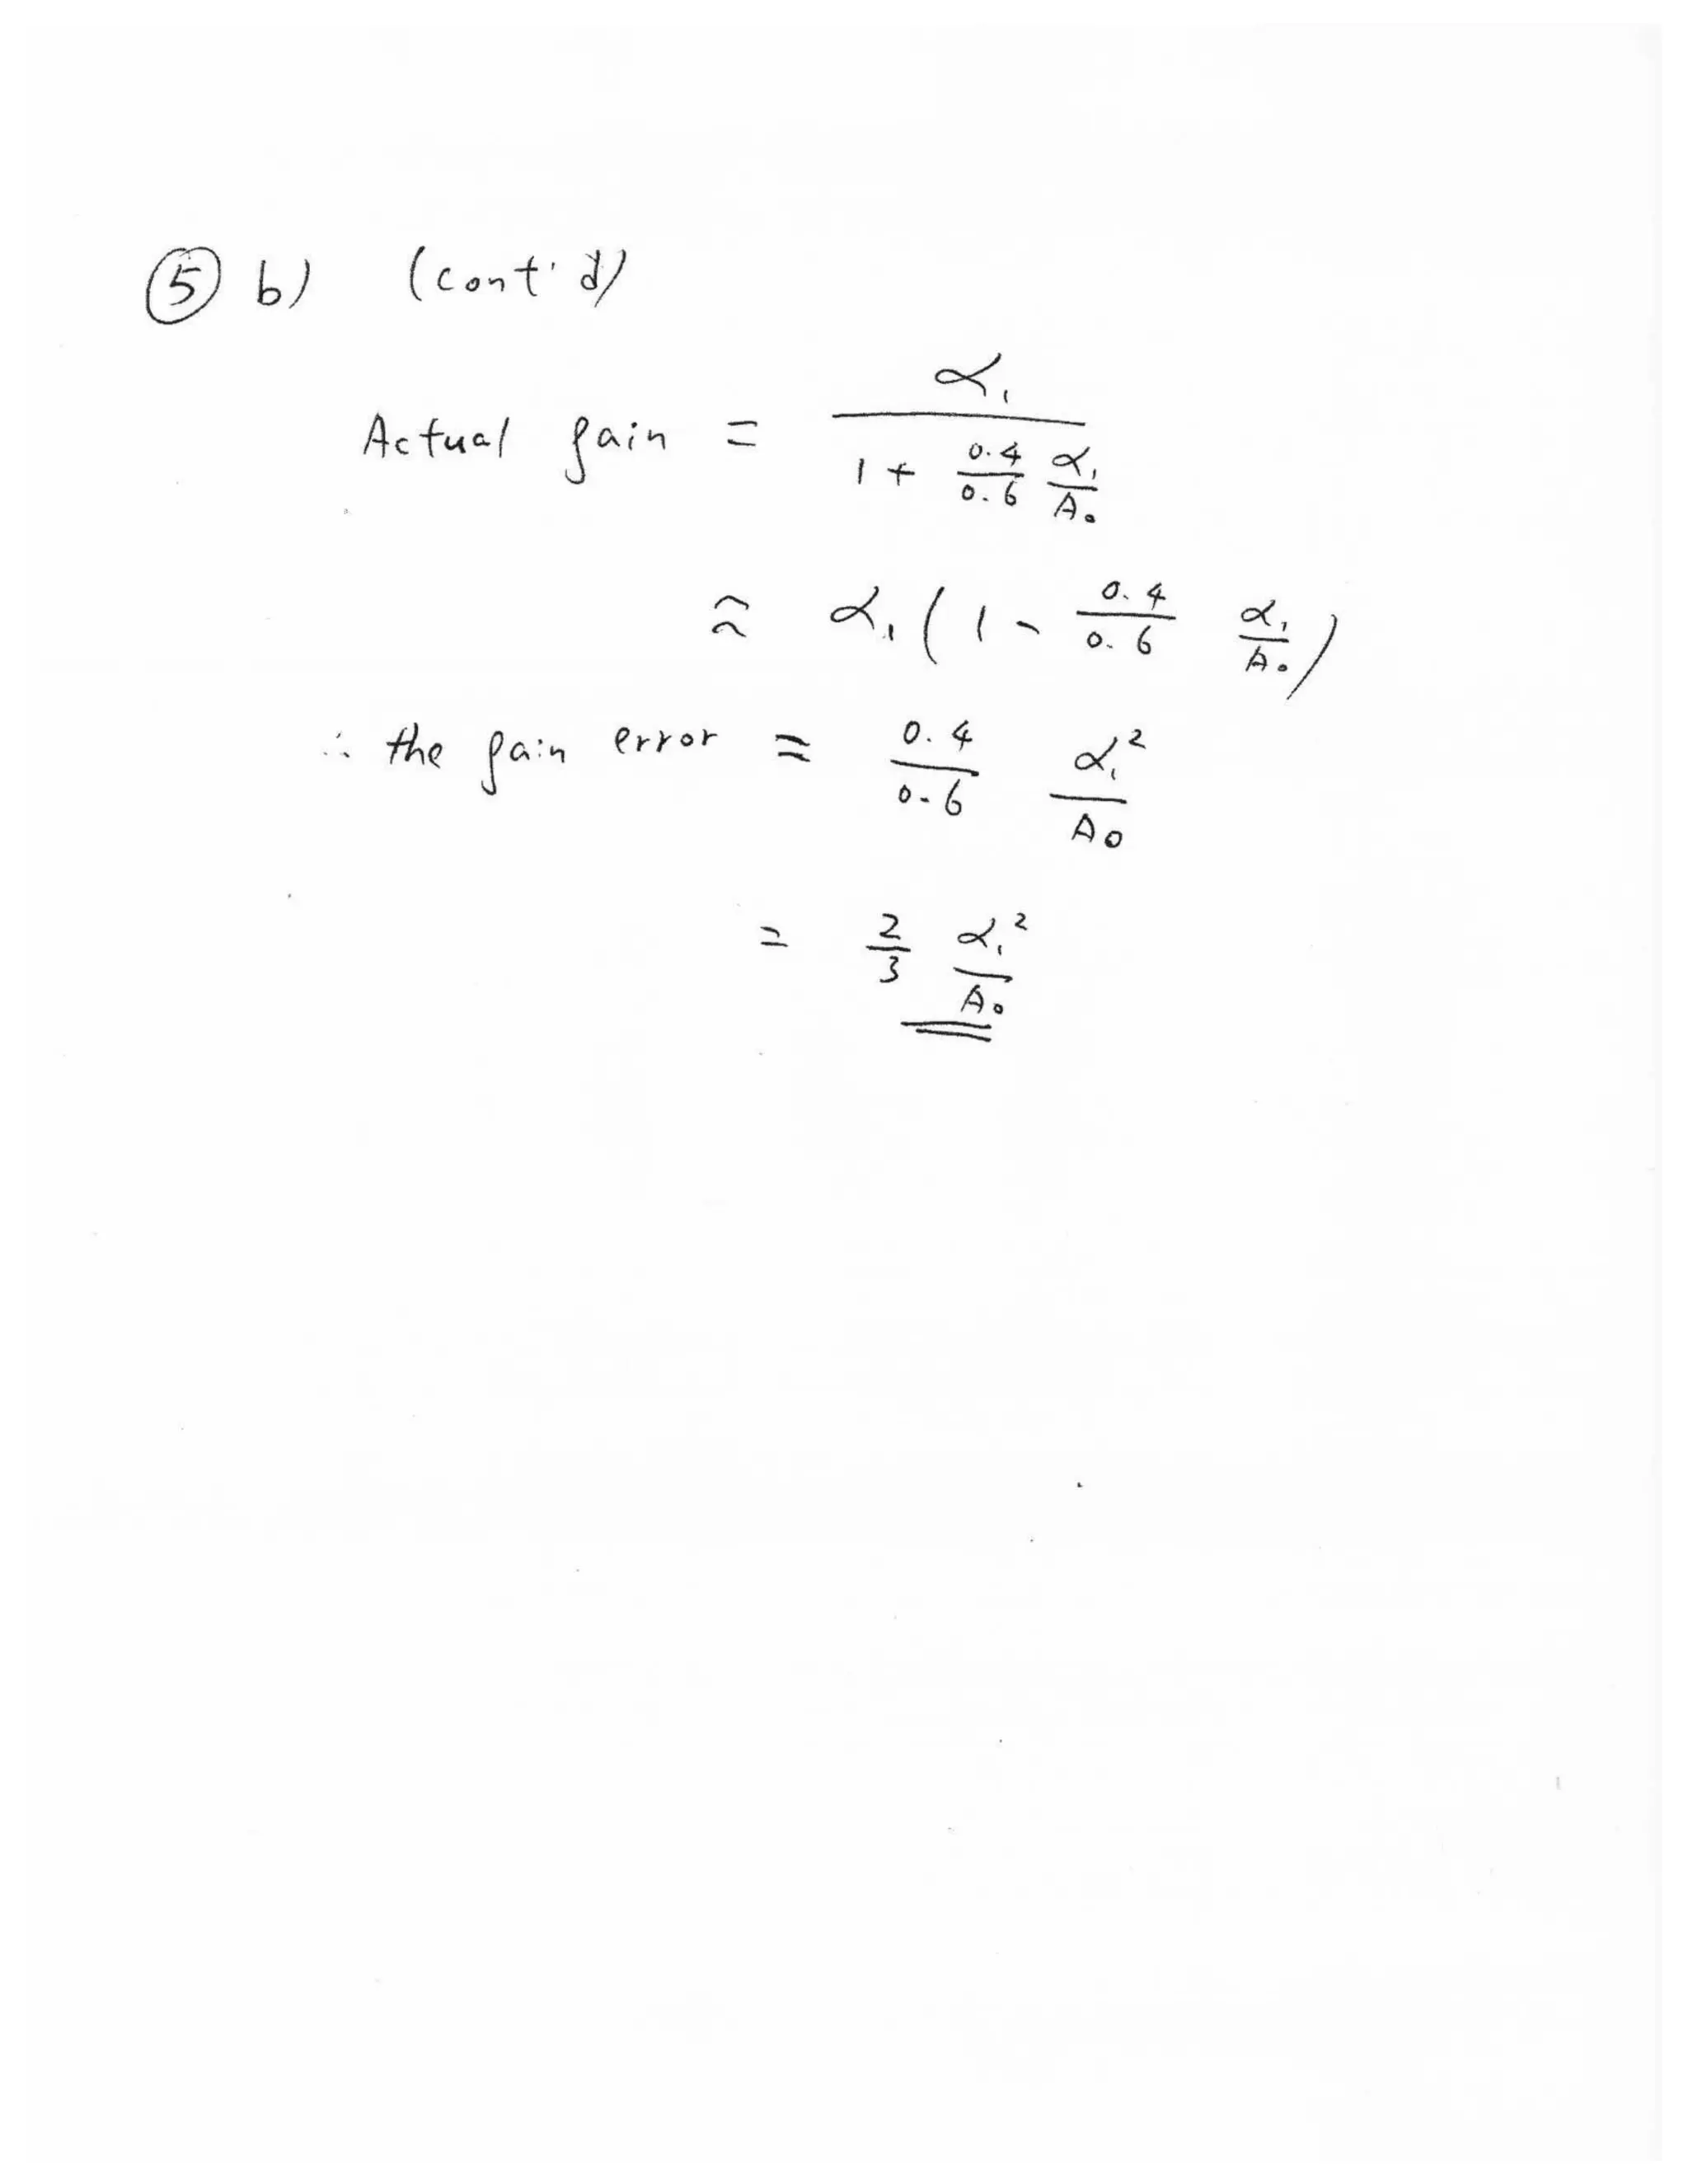 ⑤ b) (cont'd)
Actual gain = α₁ / (1 + (0.4/0.6) (α₁/A₀))
≈ α₁ (1 - (0.4/0.6) (α₁/A₀))
∴ the gain error = (0.4/0.6) (α₁²/A₀)
= (2/3) (α₁²/A₀)